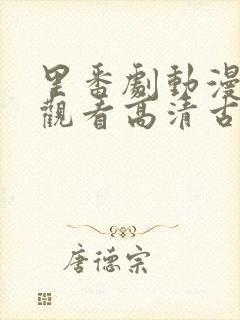 里番劇動漫
觀看高清古
唐德宗